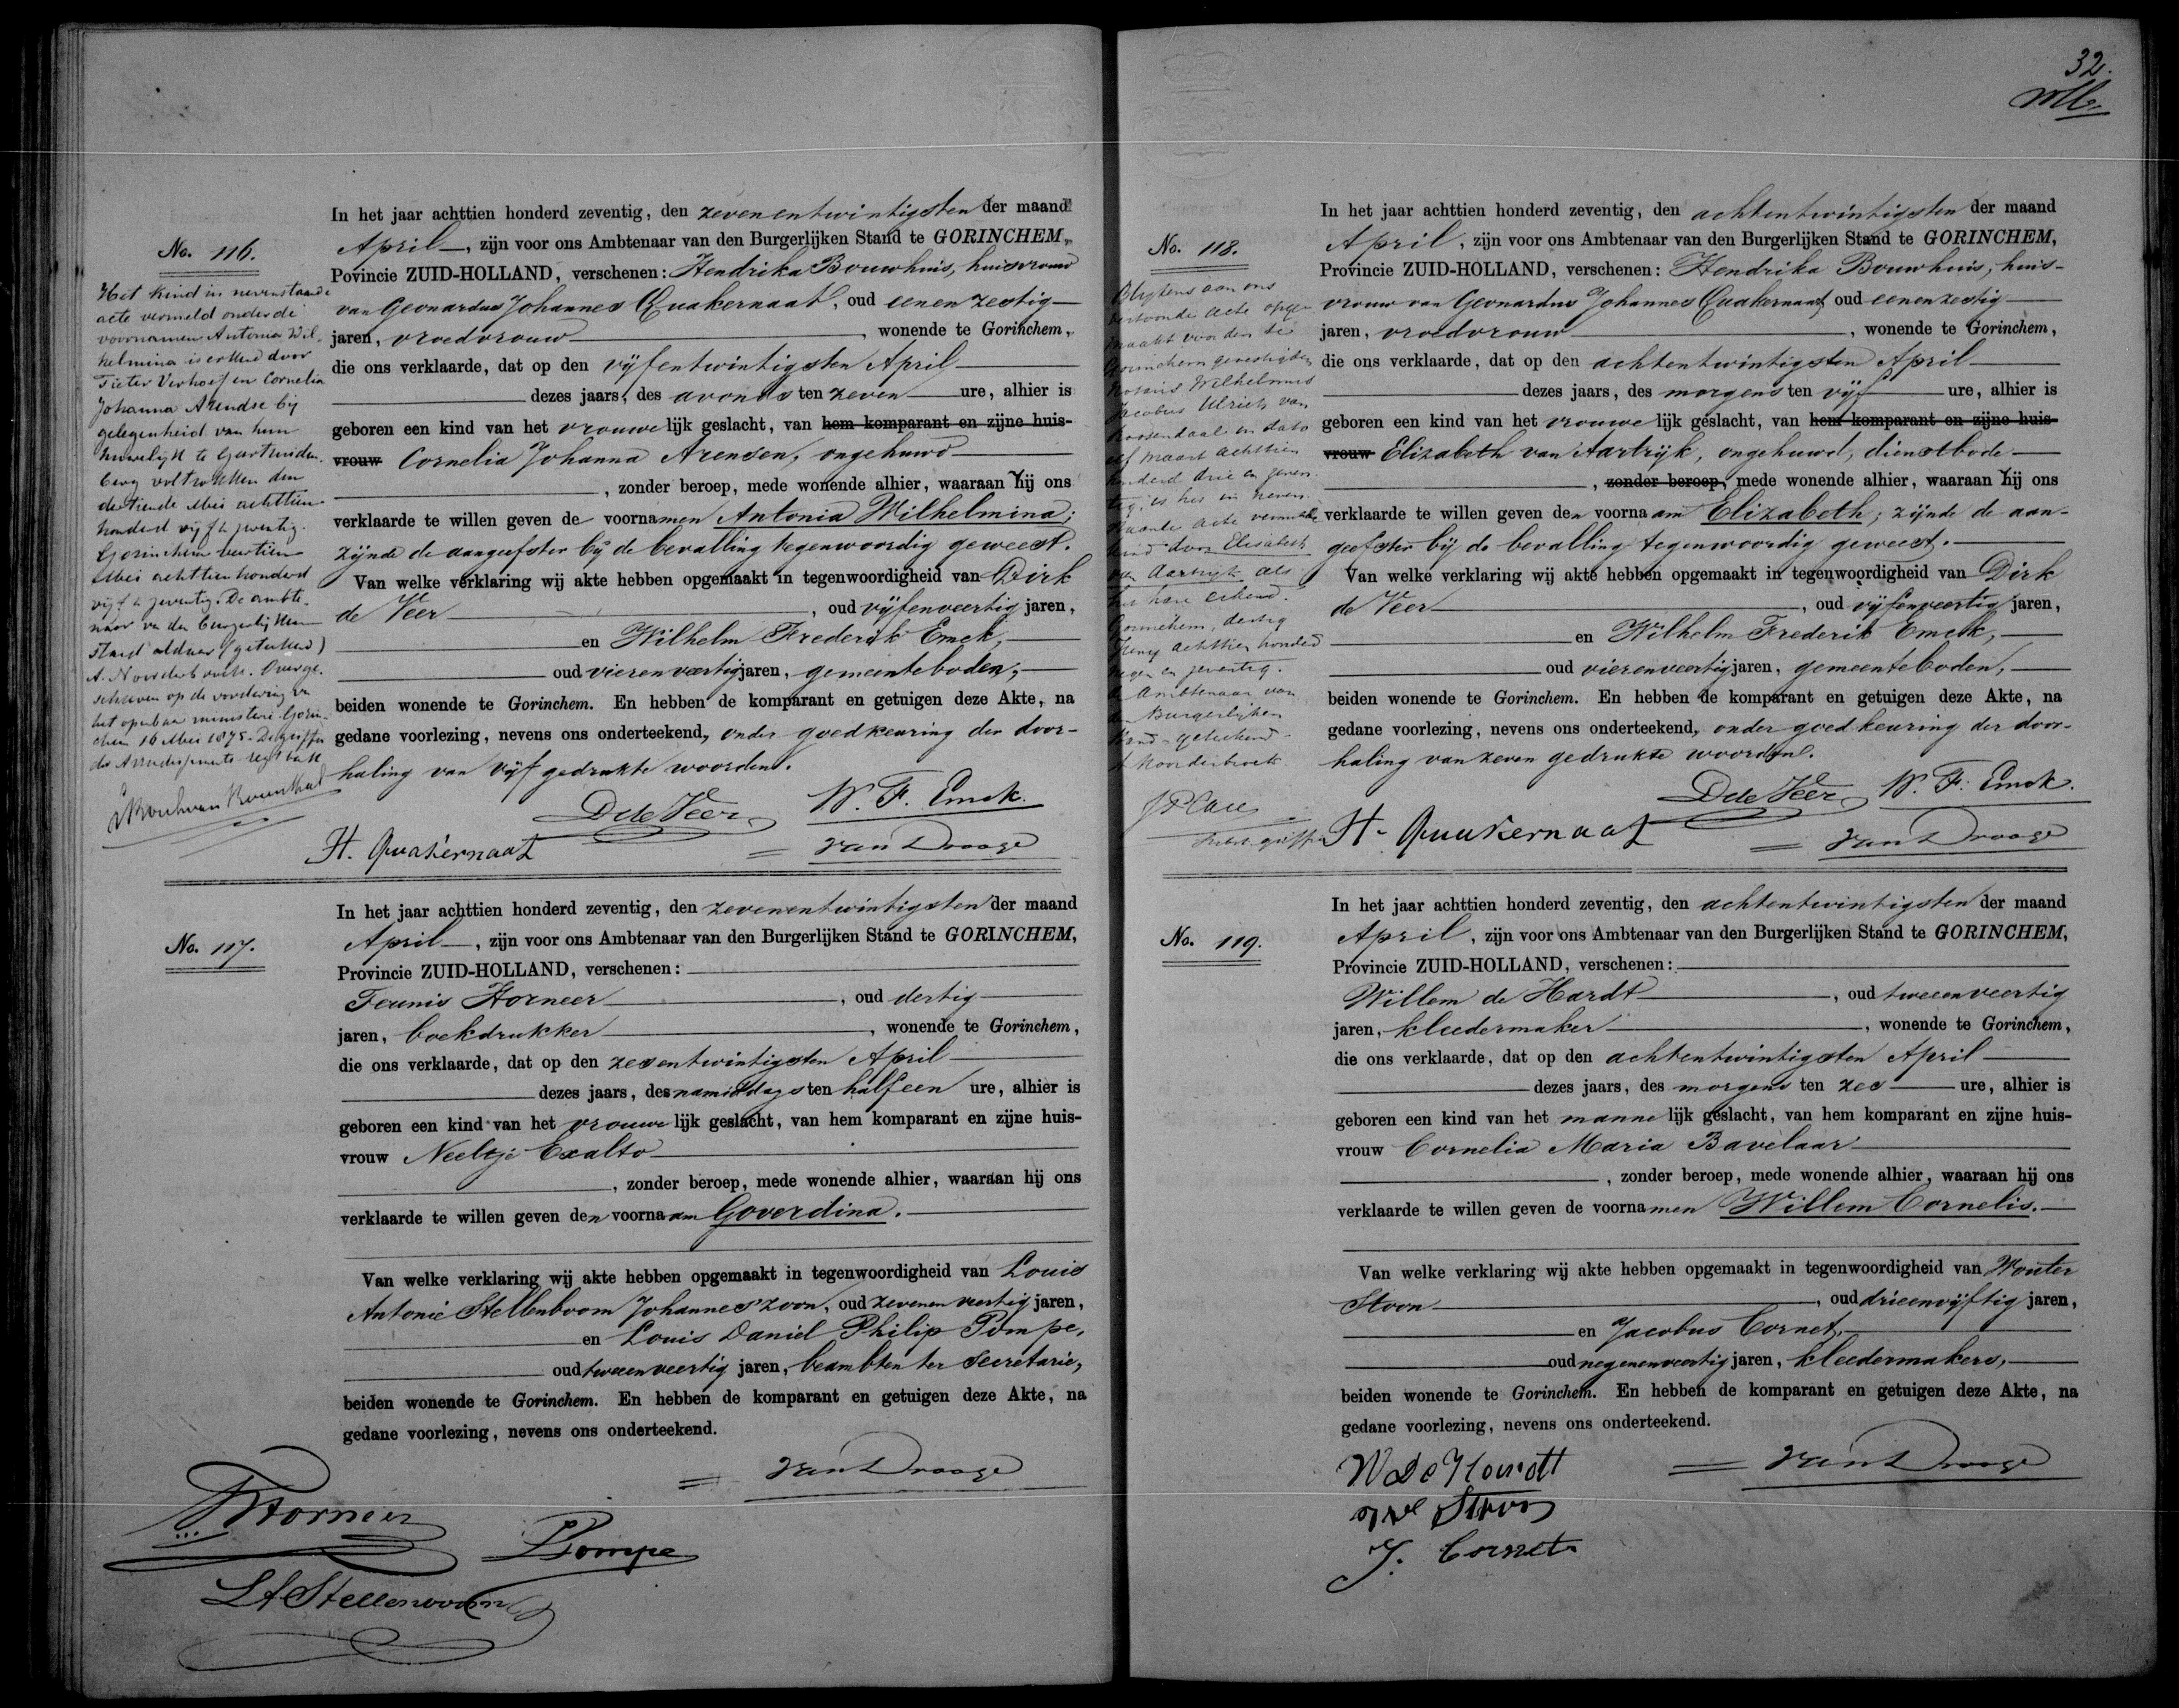 32.
No. 116.
Het kind in nevenstaande
acte vermeld onder de
voornamen Antonia Wil-
helmina is erkend door
Pieter Verhoef en Cornelia
Johanna Arendse bij
gelegenheid van hun
huwelijk te Geertruiden-
berg voltrokken den
dertiende Mei achttien
honderd vijf & zeventig.
Gorinchem veertien
Mei achttienhonderd
vijf & zeventig. De ambte-
naar van den burgerlijken
stand aldaar (geteekend)
A. Noorderbroek. Overge-
schreven op de vordering van
het openbaar ministerie Gorin-
chem 16 Mei 1875. De griffier
der Arrondissements regtbank
In het jaar achttien honderd zeventig, den zevenentwintigsten der maand
April, zijn voor ons Ambtenaar van den Burgerlijken Stand te GORINCHEM,
Povincie ZUID-HOLLAND, verschenen: Hendrika Bouwhuis, huisvrouw
van Geonardus Johannes Quakernaat, oud eenenzestig
jaren, vroedvrouw, wonende te Gorinchem,
die ons verklaarde, dat op den vijfentwintigsten April
dezes jaars, des avonds ten zeven ure, alhier is
geboren een kind van het vrouwelijk geslacht, van hem komparant en zijne huis-
vrouw Cornelia Johanna Arensen, ongehuwd
, zonder beroep, mede wonende alhier, waaraan zij ons
verklaarde te willen geven de voornamen Antonia Wilhelmina;
zijnde de aangeefster bij de bevalling tegenwoordig geweest.
Van welke verklaring wij akte hebben opgemaakt in tegenwoordigheid van Dirk
de Veer, oud vijfenveertig jaren,
en Wilhelm Frederik Emck,
oud vierenveertig jaren, gemeenteboden,
beiden wonende te Gorinchem. En hebben de komparant en getuigen deze Akte, na
gedane voorlezing, nevens ons onderteekend, onder goedkeuring der door-
haling van vijf gedrukte woorden.
D de Veer W. F. Emck.
H. Quakernaat van Drooge
No. 117.
In het jaar achttien honderd zeventig, den zevenentwintigsten der maand
April, zijn voor ons Ambtenaar van den Burgerlijken Stand te GORINCHEM,
Provincie ZUID-HOLLAND, verschenen:
Teunis Horneer, oud dertig
jaren, boekdrukker, wonende te Gorinchem,
die ons verklaarde, dat op den zesentwintigsten April
dezes jaars, des namiddags ten half een ure, alhier is
geboren een kind van het vrouwelijk geslacht, van hem komparant en zijne huis-
vrouw Neeltje Exalto
, zonder beroep, mede wonende alhier, waaraan hij ons
verklaarde te willen geven den voornaam Goverdina.
Van welke verklaring wij akte hebben opgemaakt in tegenwoordigheid van Louis
Antonie Stellenboom Johanneszoon, oud zevenenveertig jaren,
en Louis Daniel Philip Pompe,
oud tweeenveertig jaren, beambten ter Secretarie,
beiden wonende te Gorinchem. En hebben de komparant en getuigen deze Akte, na
gedane voorlezing, nevens ons onderteekend.
van Drooge
T Horneer
Pompe
LA Stellenboom
No. 118.
Blijkens aan ons
vertoonde acte opge-
maakt voor den te
Gorinchem gevestigden
Notaris Wilhelmus
Jacobus Ulrich van
Roosendaal in dato
elf Maart achttien
honderd drie en zeven-
tig, is het in neven-
staande acte vermelde
kind door Elisabeth
van Aartrijk als
het hare erkend.
Gorinchem, dertig
Juny achttien honderd
negen en zeventig.
De Ambtenaar van
den Burgerlijken
Stand geteekend
A Noorderbroek
In het jaar achttien honderd zeventig, den achtentwintigsten der maand
April, zijn voor ons Ambtenaar van den Burgerlijken Stand te GORINCHEM,
Provincie ZUID-HOLLAND, verschenen: Hendrika Bouwhuis, huis-
vrouw van Geonardus Johannes Quakernaat, oud eenenzestig
jaren, vroedvrouw, wonende te Gorinchem,
die ons verklaarde, dat op den achtentwintigsten April
dezes jaars, des morgens ten vijf ure, alhier is
geboren een kind van het vrouwelijk geslacht, van hem komparant en zijne huis-
vrouw Elizabeth van Aartrijk, ongehuwd, dienstbode
, zonder beroep, mede wonende alhier, waaraan zij ons
verklaarde te willen geven den voornaam Elizabeth; zijnde de aan-
geefster bij de bevalling tegenwoordig geweest.
Van welke verklaring wij akte hebben opgemaakt in tegenwoordigheid van Dirk
de Veer, oud vijfenveertig jaren,
en Wilhelm Frederik Emck,
oud vierenveertig jaren, gemeenteboden,
beiden wonende te Gorinchem. En hebben de komparant en getuigen deze Akte, na
gedane voorlezing, nevens ons onderteekend, onder goedkeuring der door-
haling van zeven gedrukte woorden.
D de Veer W. F. Emck.
H. Quakernaat van Drooge
No. 119.
In het jaar achttien honderd zeventig, den achtentwintigsten der maand
April, zijn voor ons Ambtenaar van den Burgerlijken Stand te GORINCHEM,
Provincie ZUID-HOLLAND, verschenen:
Willem de Hardt, oud tweeenveertig
jaren, kleedermaker, wonende te Gorinchem,
die ons verklaarde, dat op den achtentwintigsten April
dezes jaars, des morgens ten zes ure, alhier is
geboren een kind van het mannelijk geslacht, van hem komparant en zijne huis-
vrouw Cornelia Maria Bavelaar
, zonder beroep, mede wonende alhier, waaraan hij ons
verklaarde te willen geven de voornamen Willem Cornelis.
Van welke verklaring wij akte hebben opgemaakt in tegenwoordigheid van Wouter
Stoon, oud drieenvijftig jaren,
en Jacobus Cornet,
oud negenenveertig jaren, kleedermakers,
beiden wonende te Gorinchem. En hebben de komparant en getuigen deze Akte, na
gedane voorlezing, nevens ons onderteekend.
W De Hardt van Drooge
Stoon
J. Cornet